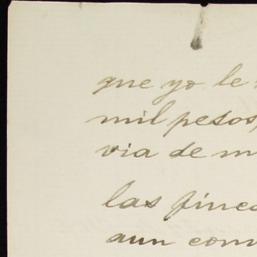 que yo le
mil pesos,
via de m
las finca
aun com